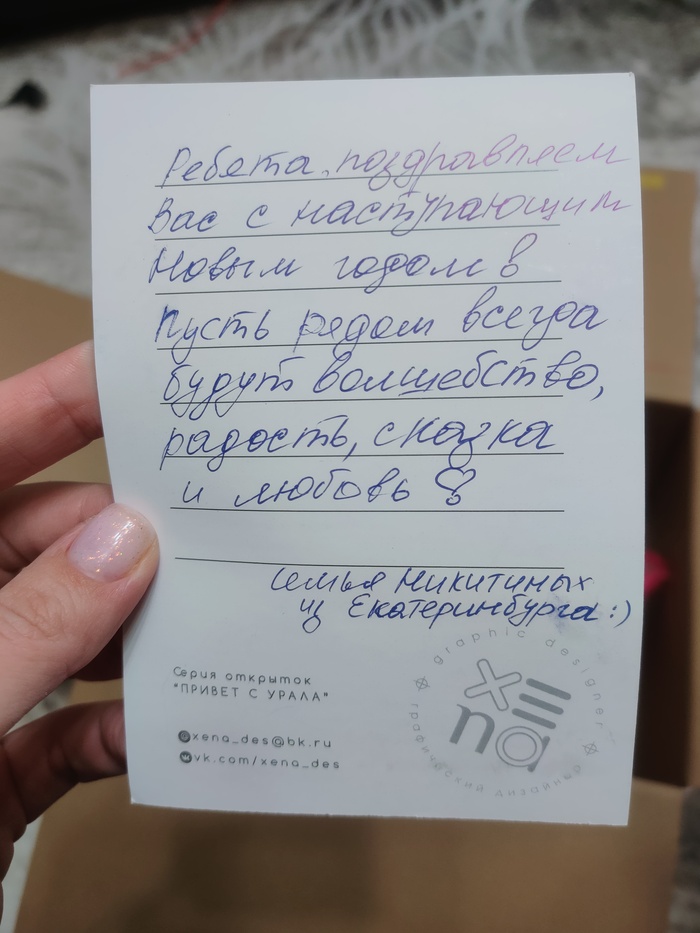 Ребята, поздравляем
Вас с наступающим
Новым годом
Пусть рядом всегда
будут волшебство,
радость, сказка
и любовь
семья Никитиных
из Екатеринбурга :)
Серия открыток
"ПРИВЕТ С УРАЛА"
xena_des@bk.ru
vk.com/xena_des
graphic designer
xena
графический дизайнер